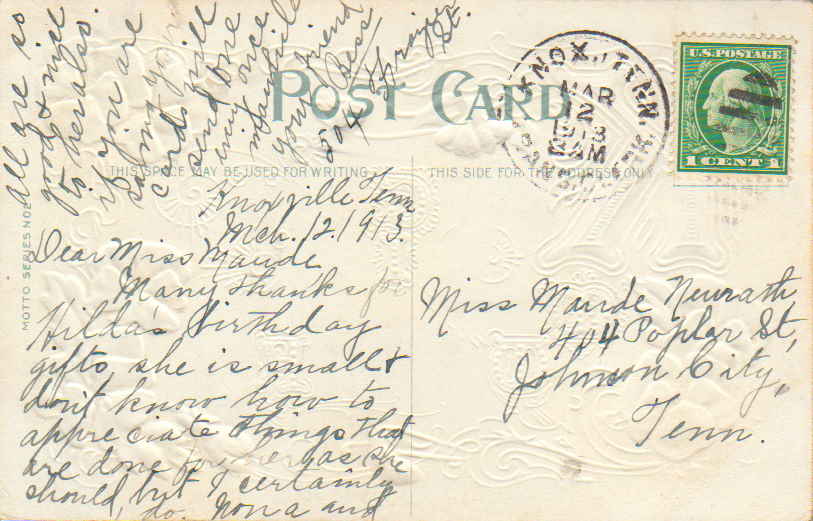 POST CARD
THIS SPACE MAY BE USED FOR WRITING
THIS SIDE FOR THE ADDRESS ONLY
MOTTO SERIES NO2
Knoxville Tenn
Mch. 12. 1913.
Dear Miss Maude
Many thanks for
Hildas birthday
gifts, she is small &
don't know how to
appreciate things that
are done for her as she
should, but I certainly
do. Nona and
All are so
good & nice
to her also.
If you are
saving your
cards will
send one
once
in a while
your friend
Bess
504
St.
KNOX., TENN.
MAR
12
1913
AM
U.S. POSTAGE
1 CENT 1
Miss Maude Neurath,
404 Poplar St,
Johnson City,
Tenn.